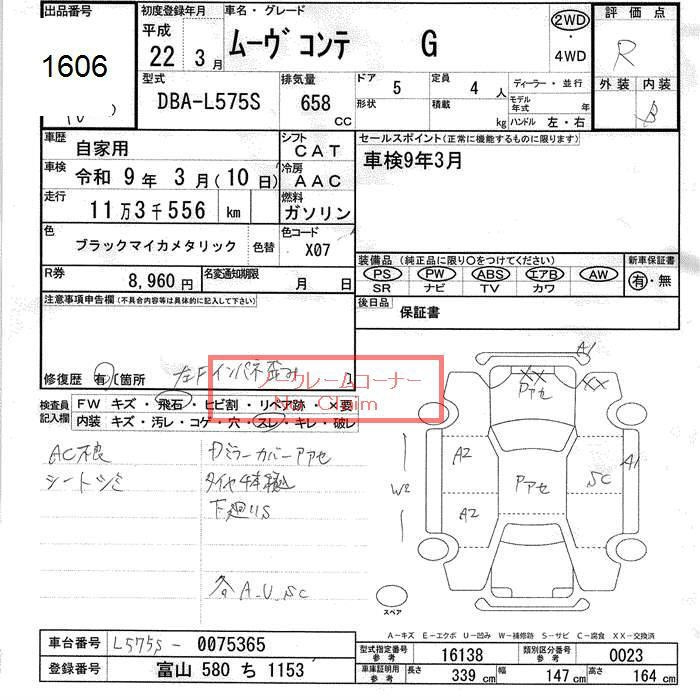 出品番号 初度登録年月 車名・グレード 2WD 評価点
平成 22 3月 ムーヴコンテ G ・ R
1606 4WD
型式 排気量 ドア 5 定員 4 人 ディーラー・並行 外装 内装
DBA-L575S 658 CC 形状 積載 kg モデル年式 年 B
ハンドル 左・右
車歴 自家用 シフト CAT セールスポイント(正常に機能するものに限ります)
車検 令和 9年 3月(10日) 冷房 AAC 車検9年3月
走行 11万3千556 km 燃料 ガソリン
色 ブラックマイカメタリック 色替 色コード X07
装備品 (純正品に限り〇をつけてください) 新車保証書
R券 8,960円 名変通知期限 月 日 PS PW ABS エアB AW 有・無
SR ナビ TV カワ
注意事項申告欄(不具合内容等は具体的に記入して下さい) 後日品 保証書
修復歴 有〔箇所 左Fインパネ歪み 〕
ノークレームコーナー
No Claim
検査員記入欄 FW キズ・飛石・ヒビ割・リペア跡・×要
内装 キズ・汚レ・コゲ・穴・スレ・キレ・破レ
AC不良 カワミラーカバーアアセ
シートシミ タイヤ4本
下廻りS
各A.U.SC
A1
XX XX
アセ
A2 Pアセ SC A1
W2
A2
スペア
A-キズ E-エクボ U-凹み W-補修跡 S-サビ C-腐食 XX-交換済
車台番号 L575S- 0075365 型式指定番号 参考 16138 類別区分番号 参考 0023
登録番号 富山 580 ち 1153 車庫証明用 参考 長さ 339 cm 幅 147 cm 高さ 164 cm